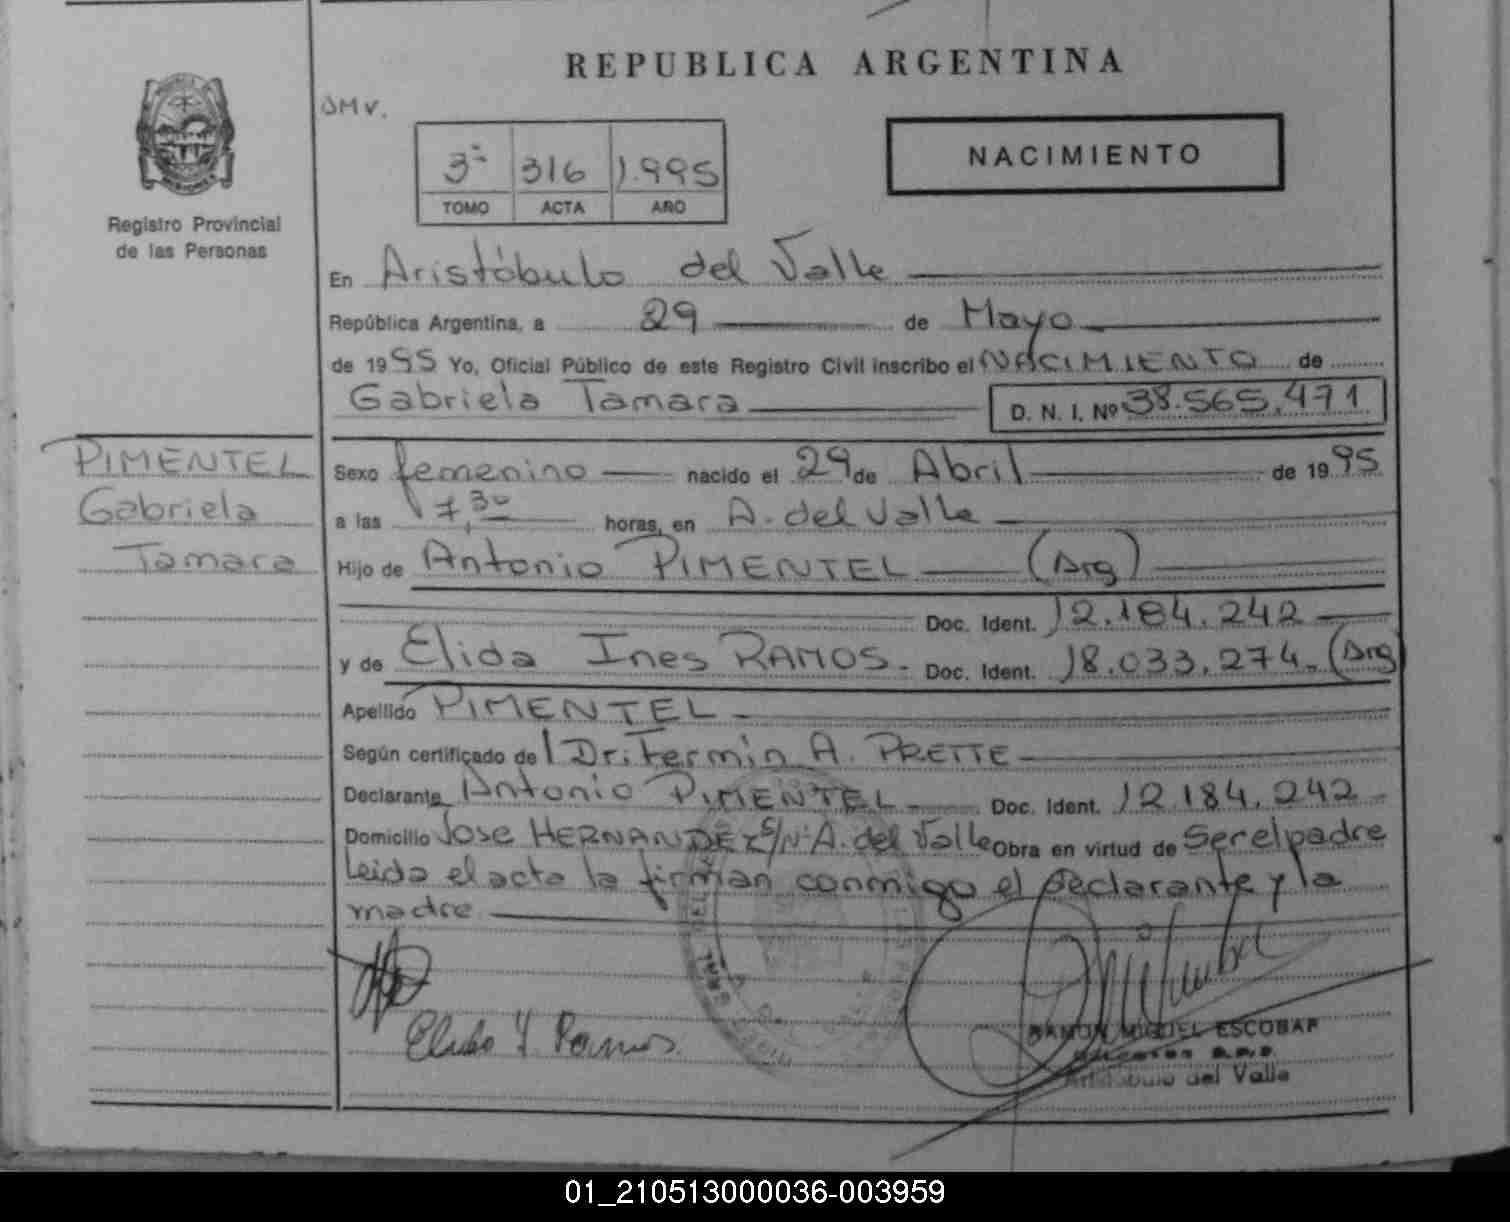 REPUBLICA ARGENTINA
JMV.
NACIMIENTO
3º 316 1.995
TOMO ACTA AÑO
Registro Provincial
de las Personas
En Aristóbulo del Valle
República Argentina, a 29 de Mayo
de 1995 Yo, Oficial Público de este Registro Civil inscribo el NACIMIENTO de
Gabriela Tamara D. N. I. Nº 38.565.471
PIMENTEL
Gabriela
Tamara
Sexo femenino nacido el 29 de Abril de 1995
a las 7,30 horas, en A. del Valle
Hijo de Antonio PIMENTEL (Arg)
Doc. Ident. 12.184.242
y de Elida Ines RAMOS. Doc. Ident. 18.033.274. (Arg)
Apellido PIMENTEL
Según certificado del Dr. Fermín A. PRETTE
Declarante Antonio PIMENTEL Doc. Ident. 12.184.242
Domicilio Jose HERNANDEZ S/Nº A. del Valle Obra en virtud de Ser el padre
Leida el acta la firman conmigo el Declarante y la
madre
Elida Y Ramos
RAMON MIGUEL ESCOBAR
Aristobulo del Valle
01_210513000036-003959